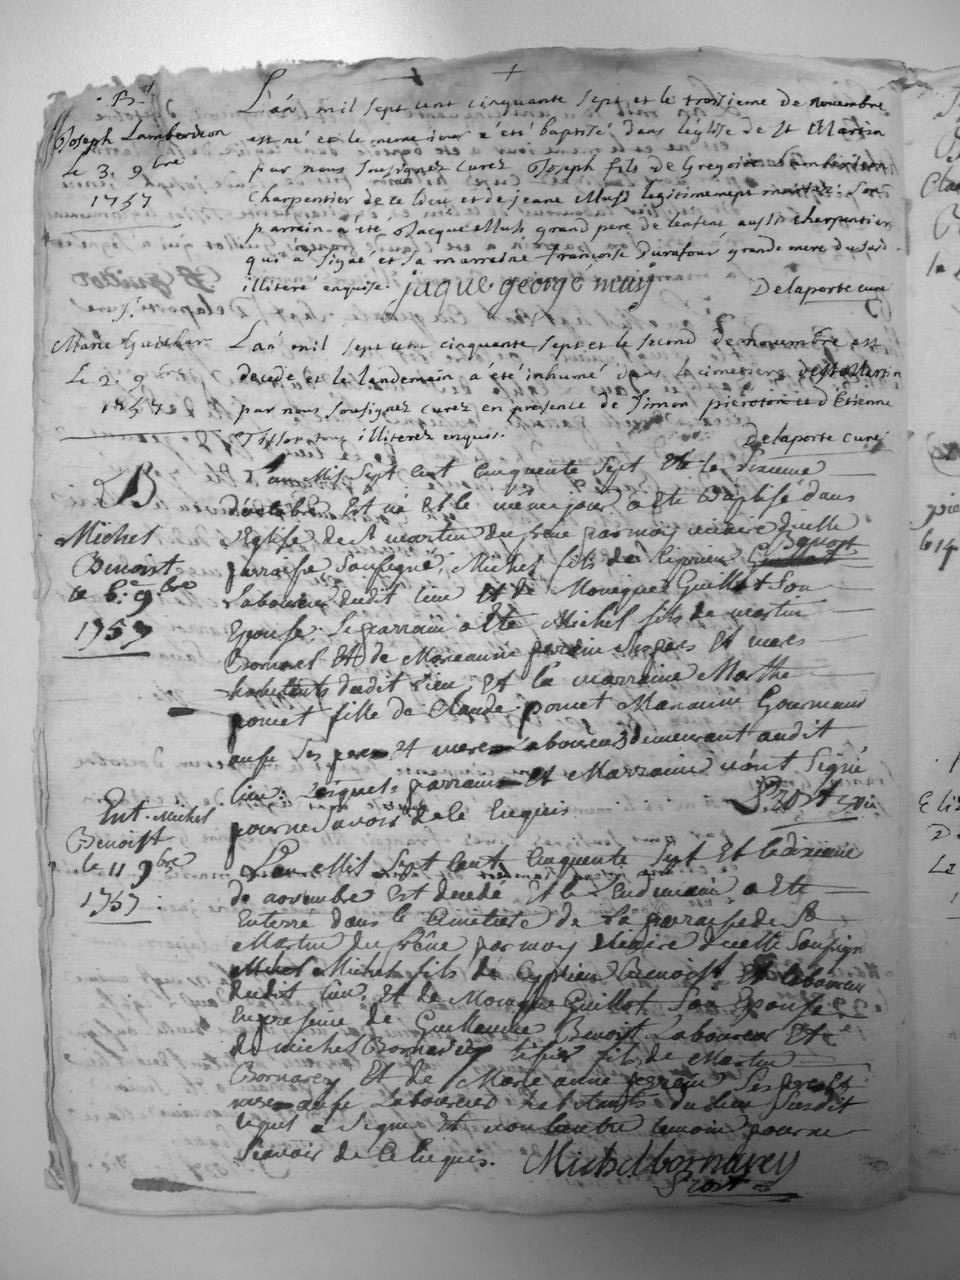 B.
Joseph Lamberdeon
le 3. 9bre
1757
L'an mil sept cent cinquante sept et le troisieme de novembre
est né et le meme jour a été baptisé dans l'église de St Martin
par nous soussignez curez Joseph fils de Gregoire
charpentier de ce lieu et de jeane Mush legitimement son
parrein a été Jacque Mush grand pere de l'enfent aussi charpentier
qui a signé et sa marreine françoise Durafour grande mere du
illiteré enquise. jaque george muis Delaporte curé
Marie
Le 2. 9bre
1757
L'an mil sept cent cinquante sept et le second de novembre est
decede et le landemain a été inhumé dans le cimetiere de St Martin
par nous soussignez curez en presence de Simon et d'Etienne
Tissot tous illiterez enquis. Delaporte curé
B
Michel
Benoist
le 6e 9bre
1757
L'an Mil Sept Cent Cinquente Sept Et le Sixieme
Est né Et le même jour a Eté Baptisé dans
l'Eglise de St martin du frêne par moy vicaire d'icelle
parroisse Soussigné, Michel fils de Ciprien Benoist
Laboureur dudit lieu Et de Monique Guillot Son
Epouse; Le parrain a Eté Michel fils de martin
Bornarel Et de Marianne perrin Ses pere Et mere
habitents dudit lieu, Et la marraine Marthe
pomet fille de Claude pomet Marianne Gourmand
aussi Ses pere Et mere laboureurs demeurant audit
lieu; Lesquels parrain Et Marraine n'ont Signé
pour ne Savoir de ce Enquis Prost vic
Ent. Michel
Benoist
le 11 9bre
1757
L'an Mil Sept Cent Cinquente Sept Et le dixieme
de novembre Est decedé Et le Lendemain a Eté
Enterré dans le Cimetiere de la parroisse de St
Martin du frêne par moy vicaire d'icelle Soussigné
Michel fils de Cyprien Benoist Laboureur
dudit lieu Et de Monique Guillot Son Epouse
En presence de Guillaume Benoist Laboureur Et
de michel Bornarey fils de Martin
Bornarey Et de Marie anne perrain Ses pere Et
mere aussi Laboureurs habitants du lieu Susdit
lequel a Signé Et non l'autre temoin pour ne
Scavoir de ce Enquis. Michel bornarey
Prost